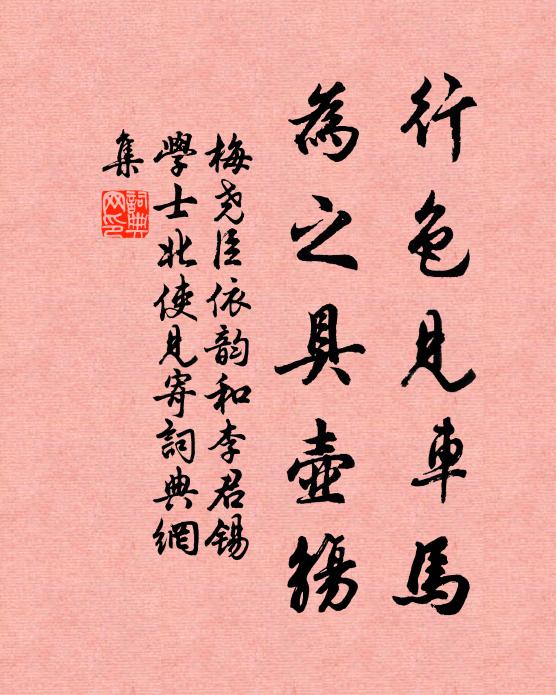 行色見車馬
為之具壺觴
梅堯臣依韵和李君錫
學士北使見寄詞典網
集
詞典網印